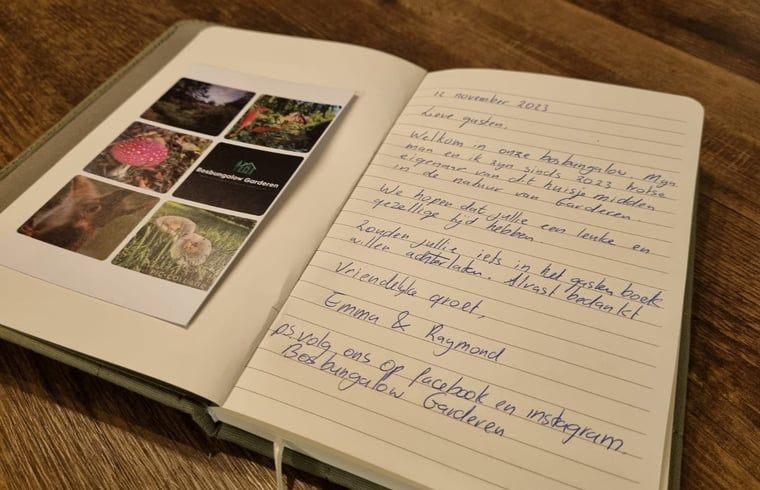 Bosbungalow Garderen
12 november 2023
Lieve gasten,
Welkom in onze bosbungalow. Mijn
man en ik zijn sinds 2023 trotse
eigenaar van dit huisje midden
in de natuur van Garderen
We hopen dat jullie een leuke en
gezellige tijd hebben.
Zouden jullie iets in het gastenboek
willen achterlaten. Alvast bedankt
Vriendelijke groet,
Emma & Raymond
ps. volg ons op facebook en instagram.
Bosbungalow Garderen